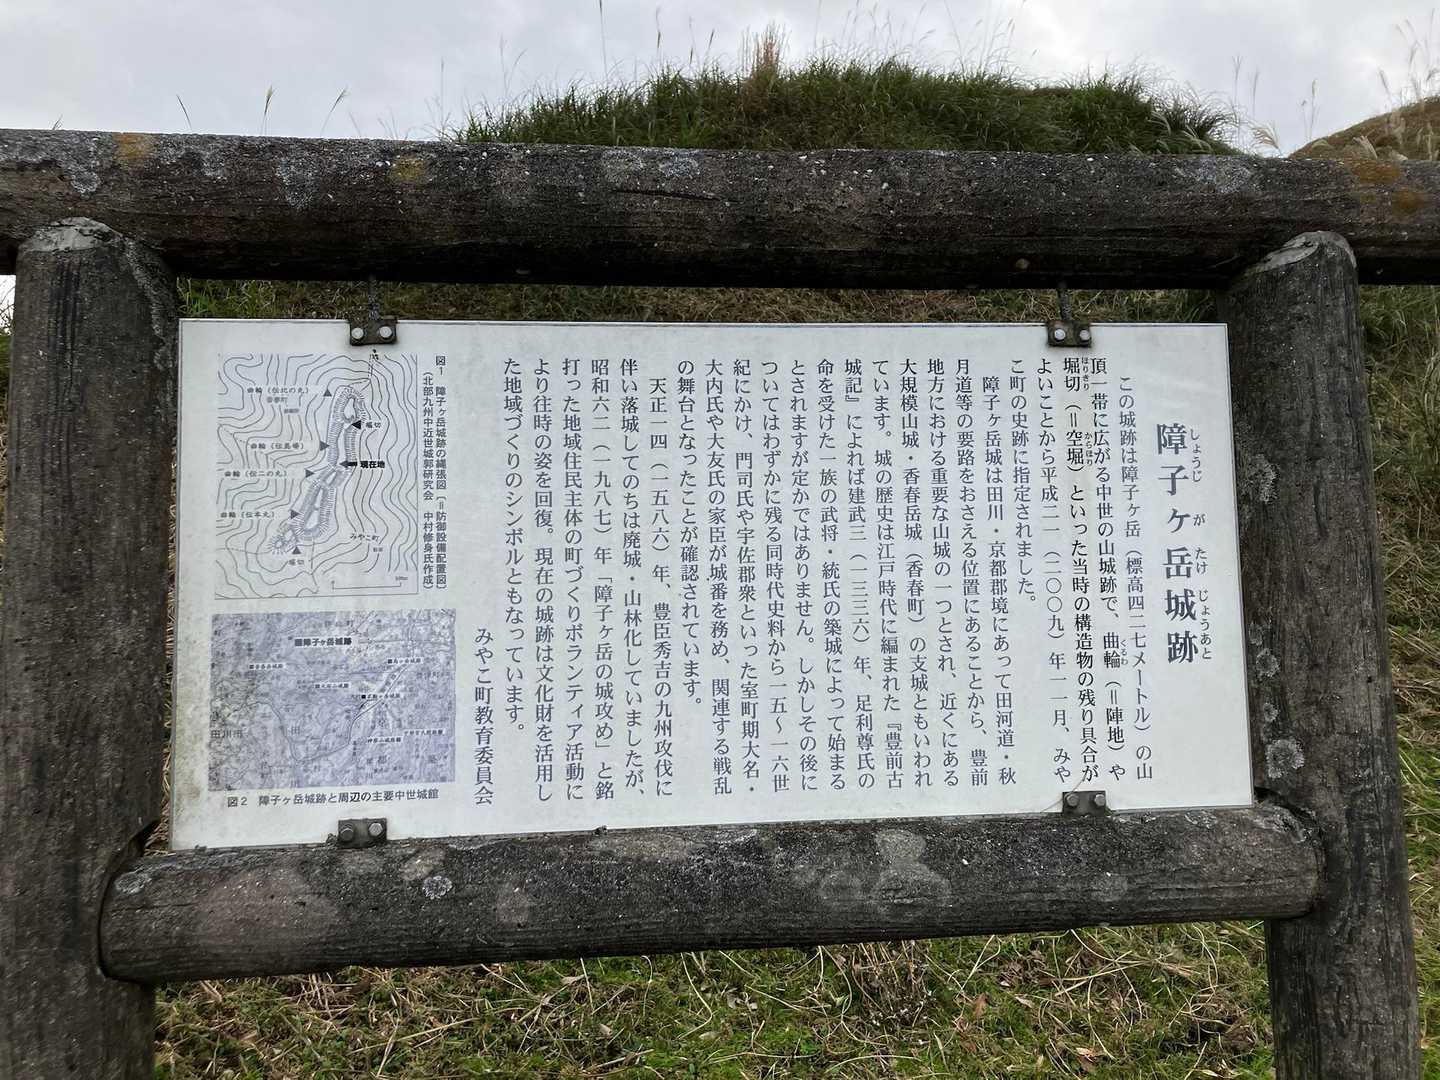 障子ヶ岳城跡
しょうじ が たけ じょうあと
この城跡は障子ヶ岳（標高四二七メートル）の山
頂一帯に広がる中世の山城跡で、曲輪（＝陣地）や
くるわ
堀切（＝空堀）といった当時の構造物の残り具合が
ほりきり からぼり
よいことから平成二一（二〇〇九）年一一月、みや
こ町の史跡に指定されました。
障子ヶ岳城は田川・京都郡境にあって田河道・秋
月道等の要路をおさえる位置にあることから、豊前
地方における重要な山城の一つとされ、近くにある
大規模山城・香春岳城（香春町）の支城ともいわれ
ています。城の歴史は江戸時代に編まれた『豊前古
城記』によれば建武三（一三三六）年、足利尊氏の
命を受けた一族の武将・統氏の築城によって始まる
とされますが定かではありません。しかしその後に
ついてはわずかに残る同時代史料から一五～一六世
紀にかけ、門司氏や宇佐郡衆といった室町期大名・
大内氏や大友氏の家臣が城番を務め、関連する戦乱
の舞台となったことが確認されています。
天正一四（一五八六）年、豊臣秀吉の九州攻伐に
伴い落城してのちは廃城・山林化していましたが、
昭和六二（一九八七）年「障子ヶ岳の城攻め」と銘
打った地域住民主体の町づくりボランティア活動に
より往時の姿を回復。現在の城跡は文化財を活用し
た地域づくりのシンボルともなっています。
みやこ町教育委員会
図1 障子ヶ岳城跡の縄張図（＝防御設備配置図）
（北部九州中近世城郭研究会 中村修身氏作成）
曲輪（伝北の丸）
堀切
曲輪（伝馬場）
現在地
曲輪（伝二の丸）
曲輪（伝本丸）
みやこ町
堀切
障子ヶ岳城跡
田川市
図2 障子ヶ岳城跡と周辺の主要中世城館